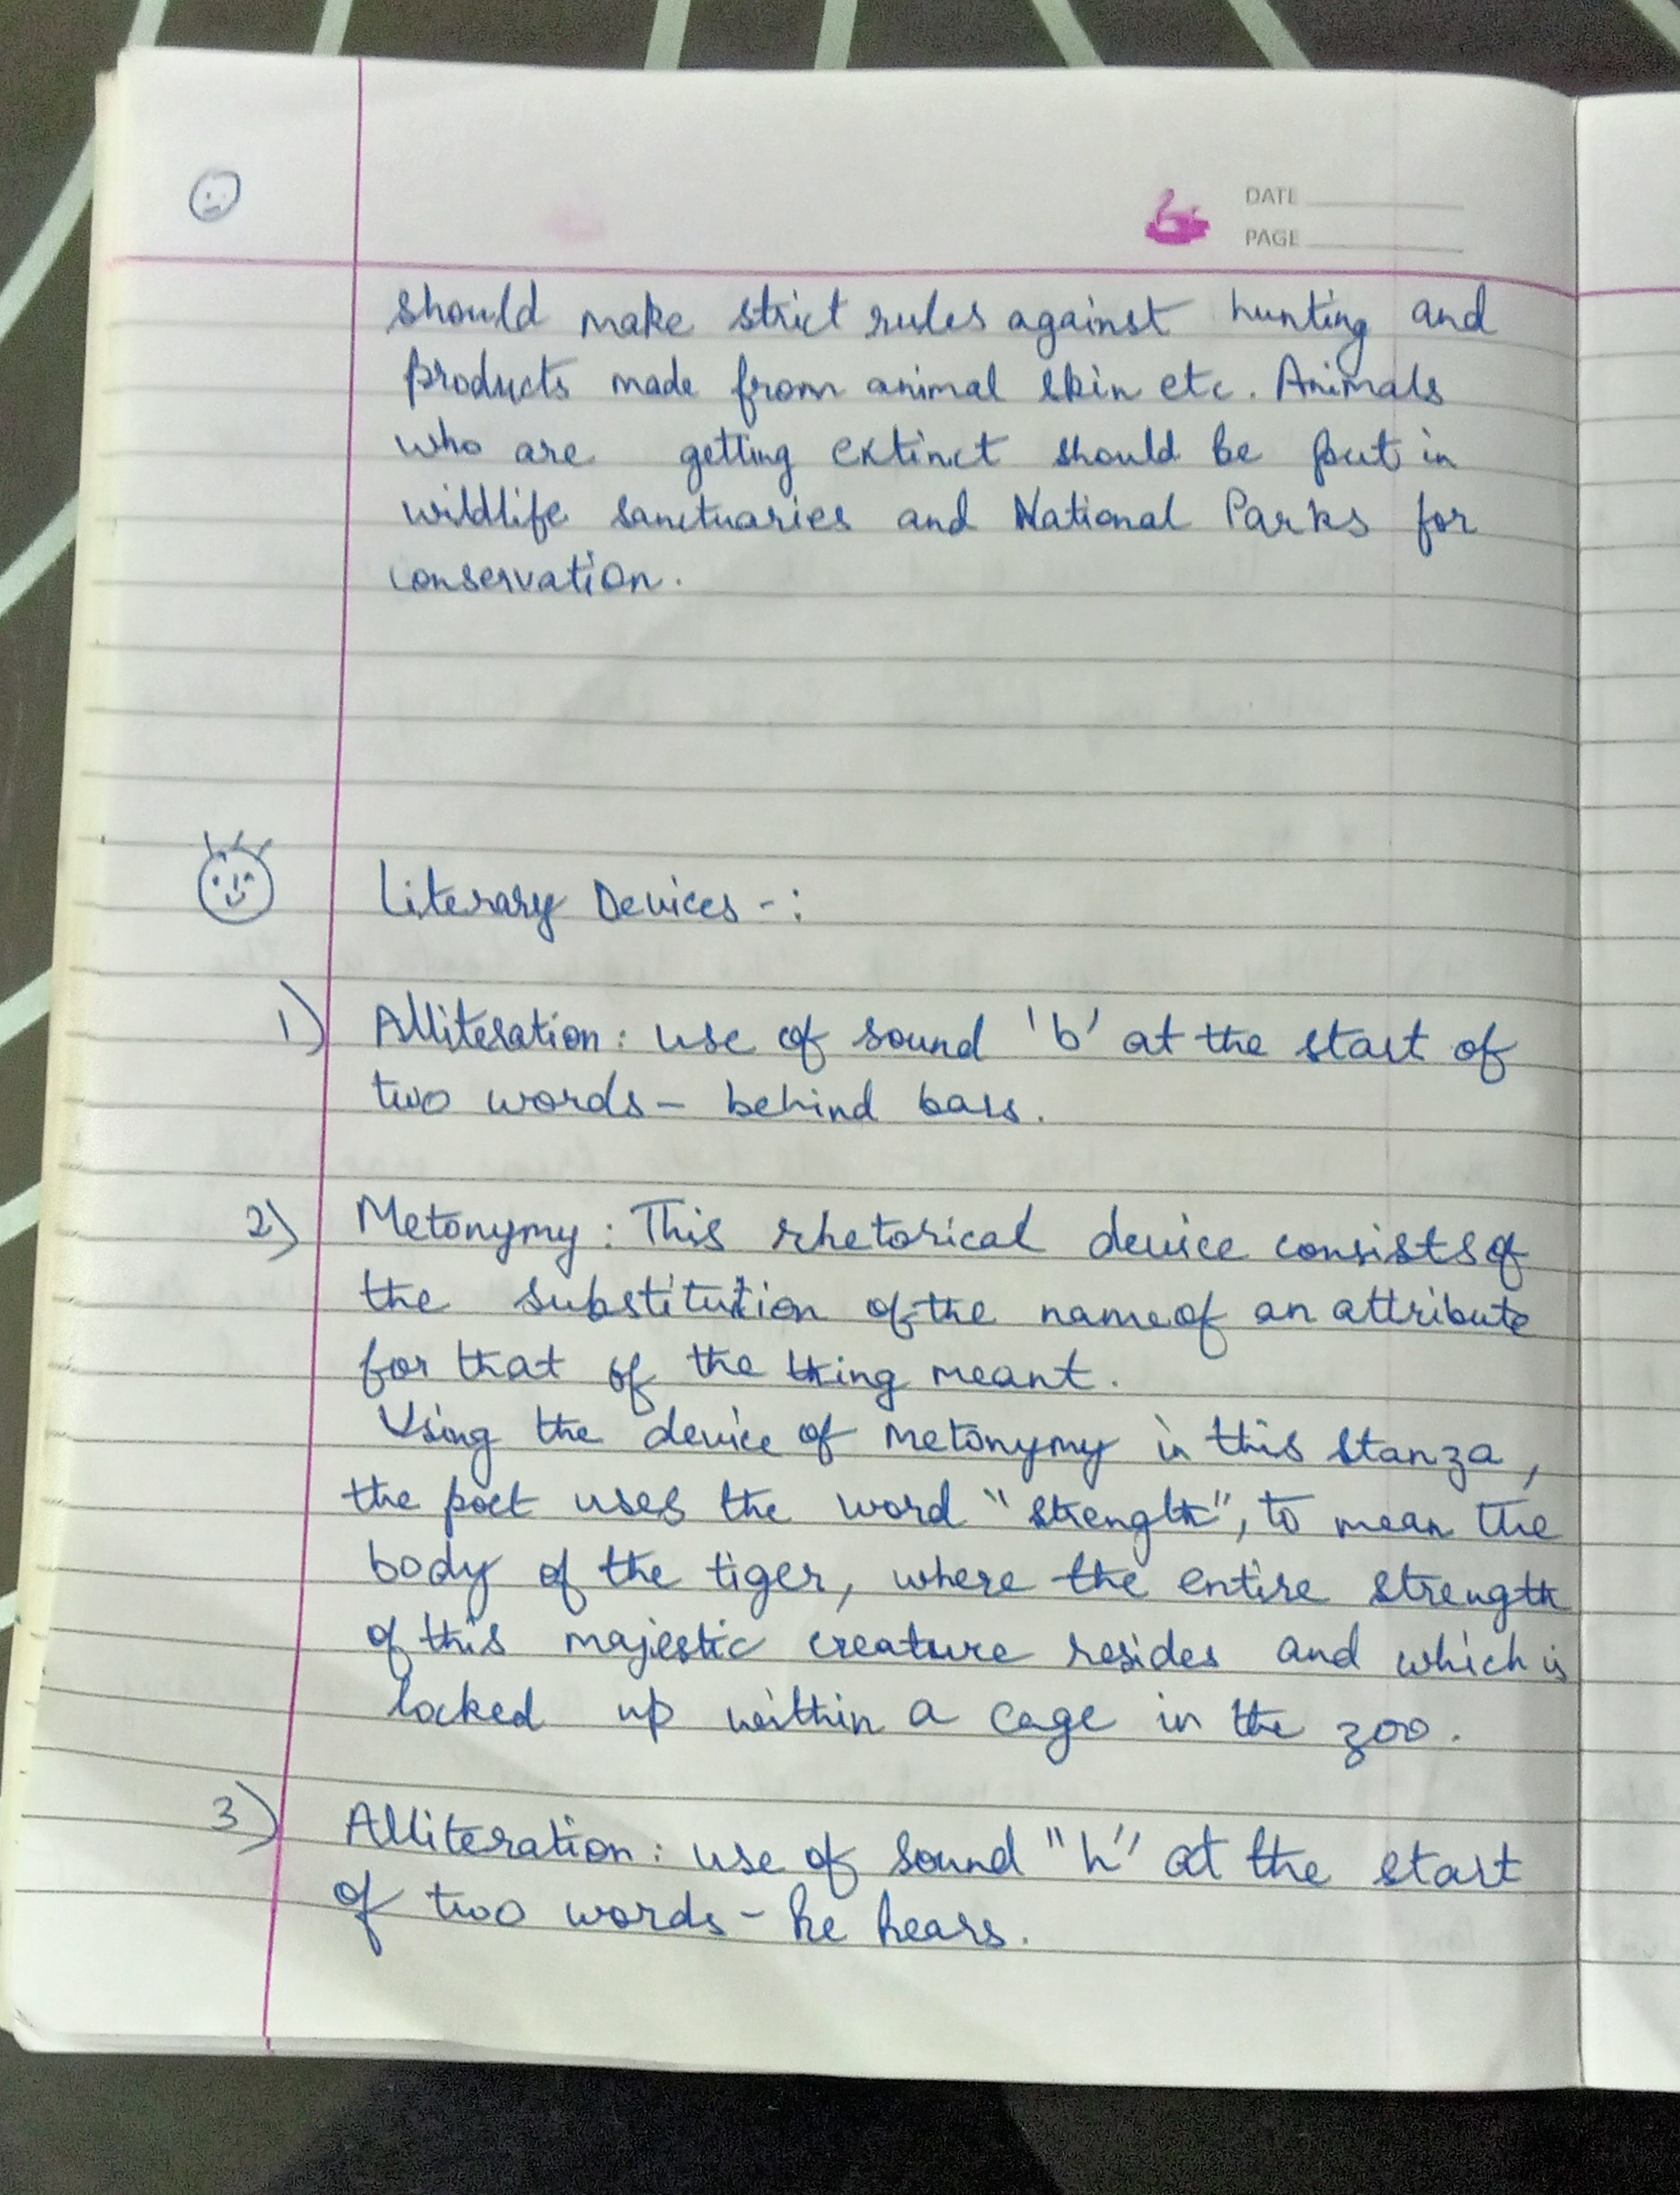 DATE
PAGE
should make strict rules against hunting and
products made from animal skin etc. Animals
who are getting extinct should be put in
wildlife sanctuaries and National Parks for
conservation.
Literary Devices -:
1) Alliteration: use of sound 'b' at the start of
two words - behind bars.
2) Metonymy: This rhetorical device consists of
the substitution of the name of an attribute
for that of the thing meant.
Using the device of metonymy in this stanza,
the poet uses the word "strength", to mean the
body of the tiger, where the entire strength
of this majestic creature resides and which is
locked up within a cage in the zoo.
3) Alliteration: use of sound "h" at the start
of two words - he hears.